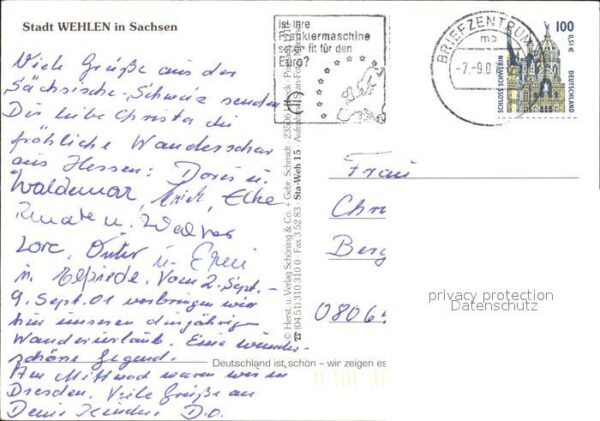 Stadt WEHLEN in Sachsen
Viele Grüße aus der
Sächsische-Schweiz senden
Dir liebe Christa die
fröhliche Wanderschar
aus Hessen: Doris u.
Waldemar, Erich, Elke
Renate u. Walter
Lore, Günter u. Erwin
u. Elfriede. Vom 2. Sept. -
9. Sept. 01 verbringen wir
hier unseren diesjährigen
Wanderurlaub. Eine wunder-
schöne Gegend.
Am Mittwoch waren wir in
Dresden. Viele Grüße an
Deine Kinder D.O.
Ist Ihre
Frankiermaschine
schon fit für den
Euro?
BRIEFZENTRUM
mb
-7.-9.0
100
0,51 €
DEUTSCHLAND
SCHLOSS SCHWERIN
© Herst. u. Verlag Schöning & Co. + Gebr. Schmidt 23506
☎ (04 51) 310 310 0 · Fax 3 52 83 · Sta-Weh 15
Frau
Chr
Berg
0806
privacy protection
Datenschutz
Deutschland ist schön – wir zeigen es